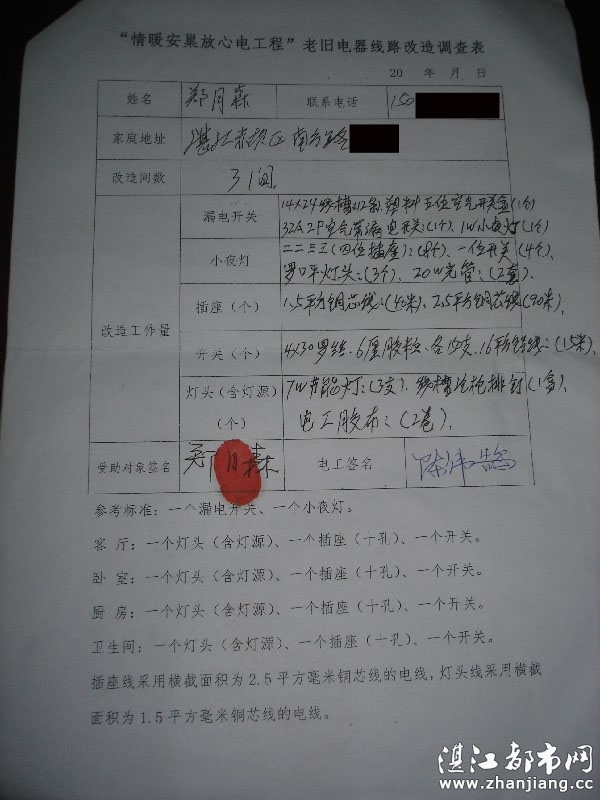 “情暖安巢放心电工程”老旧电器线路改造调查表
20 年 月 日
姓名 郑月森 联系电话 150
家庭地址 湛江赤坎区南方路
改造间数 3间
改造工作量
漏电开关 14×24线槽:12条.塑料五位空气开关盒(1个)
32A2P空气带漏电开关:(1个).1W小夜灯(1个)
小夜灯 二二三三(四位插座):(8个).一位开关(4个).
罗口平灯头:(3个).20W光管:(2套).
插座(个) 1.5平方铜芯线:(40米).2.5平方铜芯线(90米).
开关(个) 4×30罗丝.6厘胶粒.各15支.16平方铝线:(15米).
灯头(含灯源)(个) 7W节能灯:(3支).线槽汽枪排钉(1盒).
电工胶布:(2卷).
受助对象签名 郑月森 电工签名
参考标准:一个漏电开关、一个小夜灯。
客 厅:一个灯头(含灯源)、一个插座(十孔)、一个开关。
卧 室:一个灯头(含灯源)、一个插座(十孔)、一个开关。
厨 房:一个灯头(含灯源)、一个插座(十孔)、一个开关。
卫生间:一个灯头(含灯源)、一个插座(十孔)、一个开关。
插座线采用横截面积为2.5平方毫米铜芯线的电线,灯头线采用横截
面积为1.5平方毫米铜芯线的电线。
湛江都市网
www.zhanjiang.cc